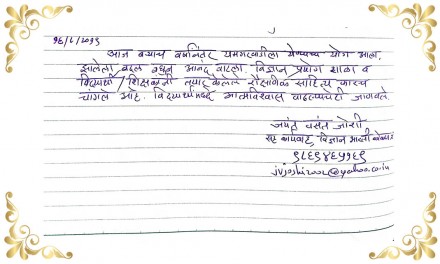 १६/८/२०१९
आज बऱ्याच वर्षानंतर यमगरवाडीला येण्याचा योग आला.
झालेला बदल बघून आनंद वाटला. विज्ञान प्रयोग शाळा व
विद्यार्थी / शिक्षकांनी तयार केलेले शैक्षणिक साहित्य फारच
चांगले आहे. विद्यार्थ्यांमध्ये आत्मविश्वास वाढल्याचेही जाणवते.
जयंत वसंत जोशी
सह कार्यवाह, विज्ञान भारती
९८६९४६५११९
jvjoshi2002@yahoo.co.in